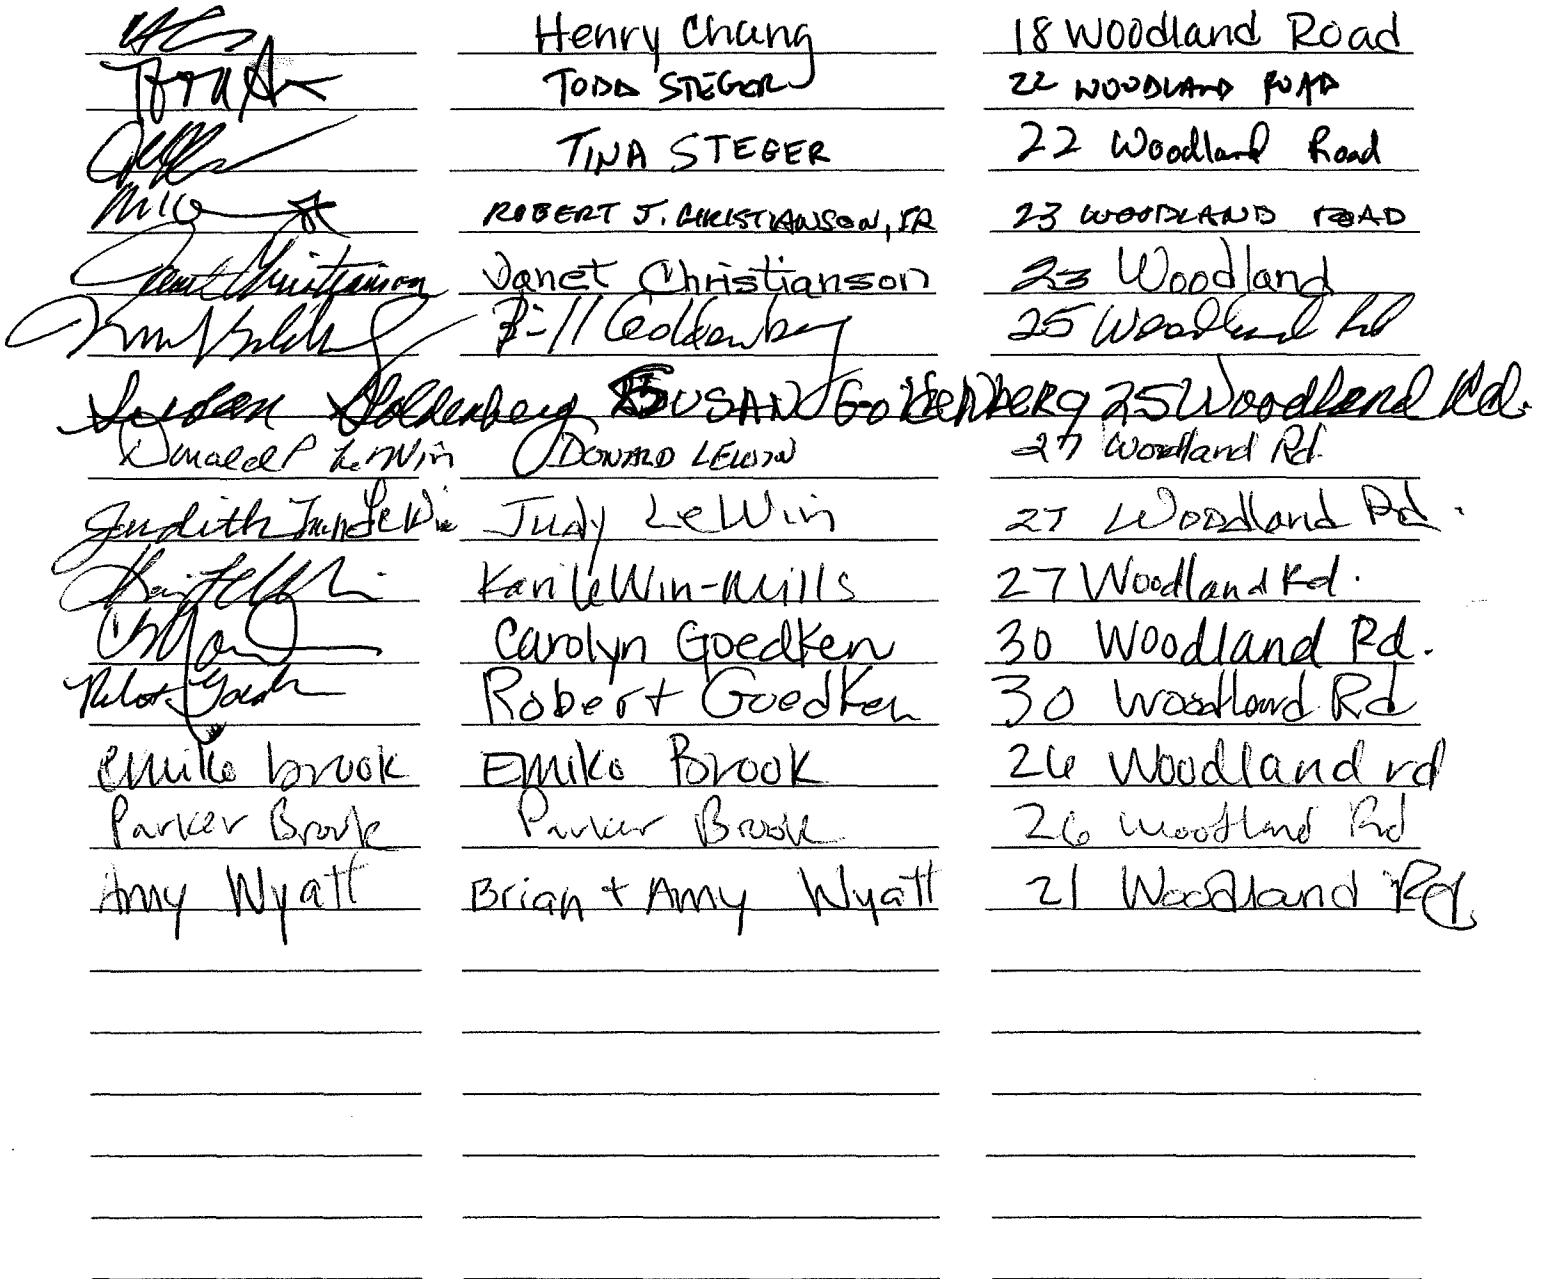 Henry Chang 18 Woodland Road
TODD STEGER 22 WOODLAND ROAD
TINA STEGER 22 Woodland Road
ROBERT J. CHRISTIANSON, JR 23 WOODLAND ROAD
Janet Christianson Janet Christianson 23 Woodland
Bill Goldenberg 25 Woodland Rd
Susan Goldenberg SUSAN Goldenberg 25 Woodland Rd.
Donald P LeWin DONALD LEWIN 27 Woodland Rd.
Judith LeWin Judy LeWin 27 Woodland Rd.
Kari LeWin-Mills 27 Woodland Rd.
Carolyn Goedken 30 Woodland Rd.
Robert Goedken 30 Woodland Rd
emiko brook Emiko Brook 26 Woodland rd
Parker Brook Parker Brook 26 Woodland Rd
Amy Wyatt Brian + Amy Wyatt 21 Woodland Rd.